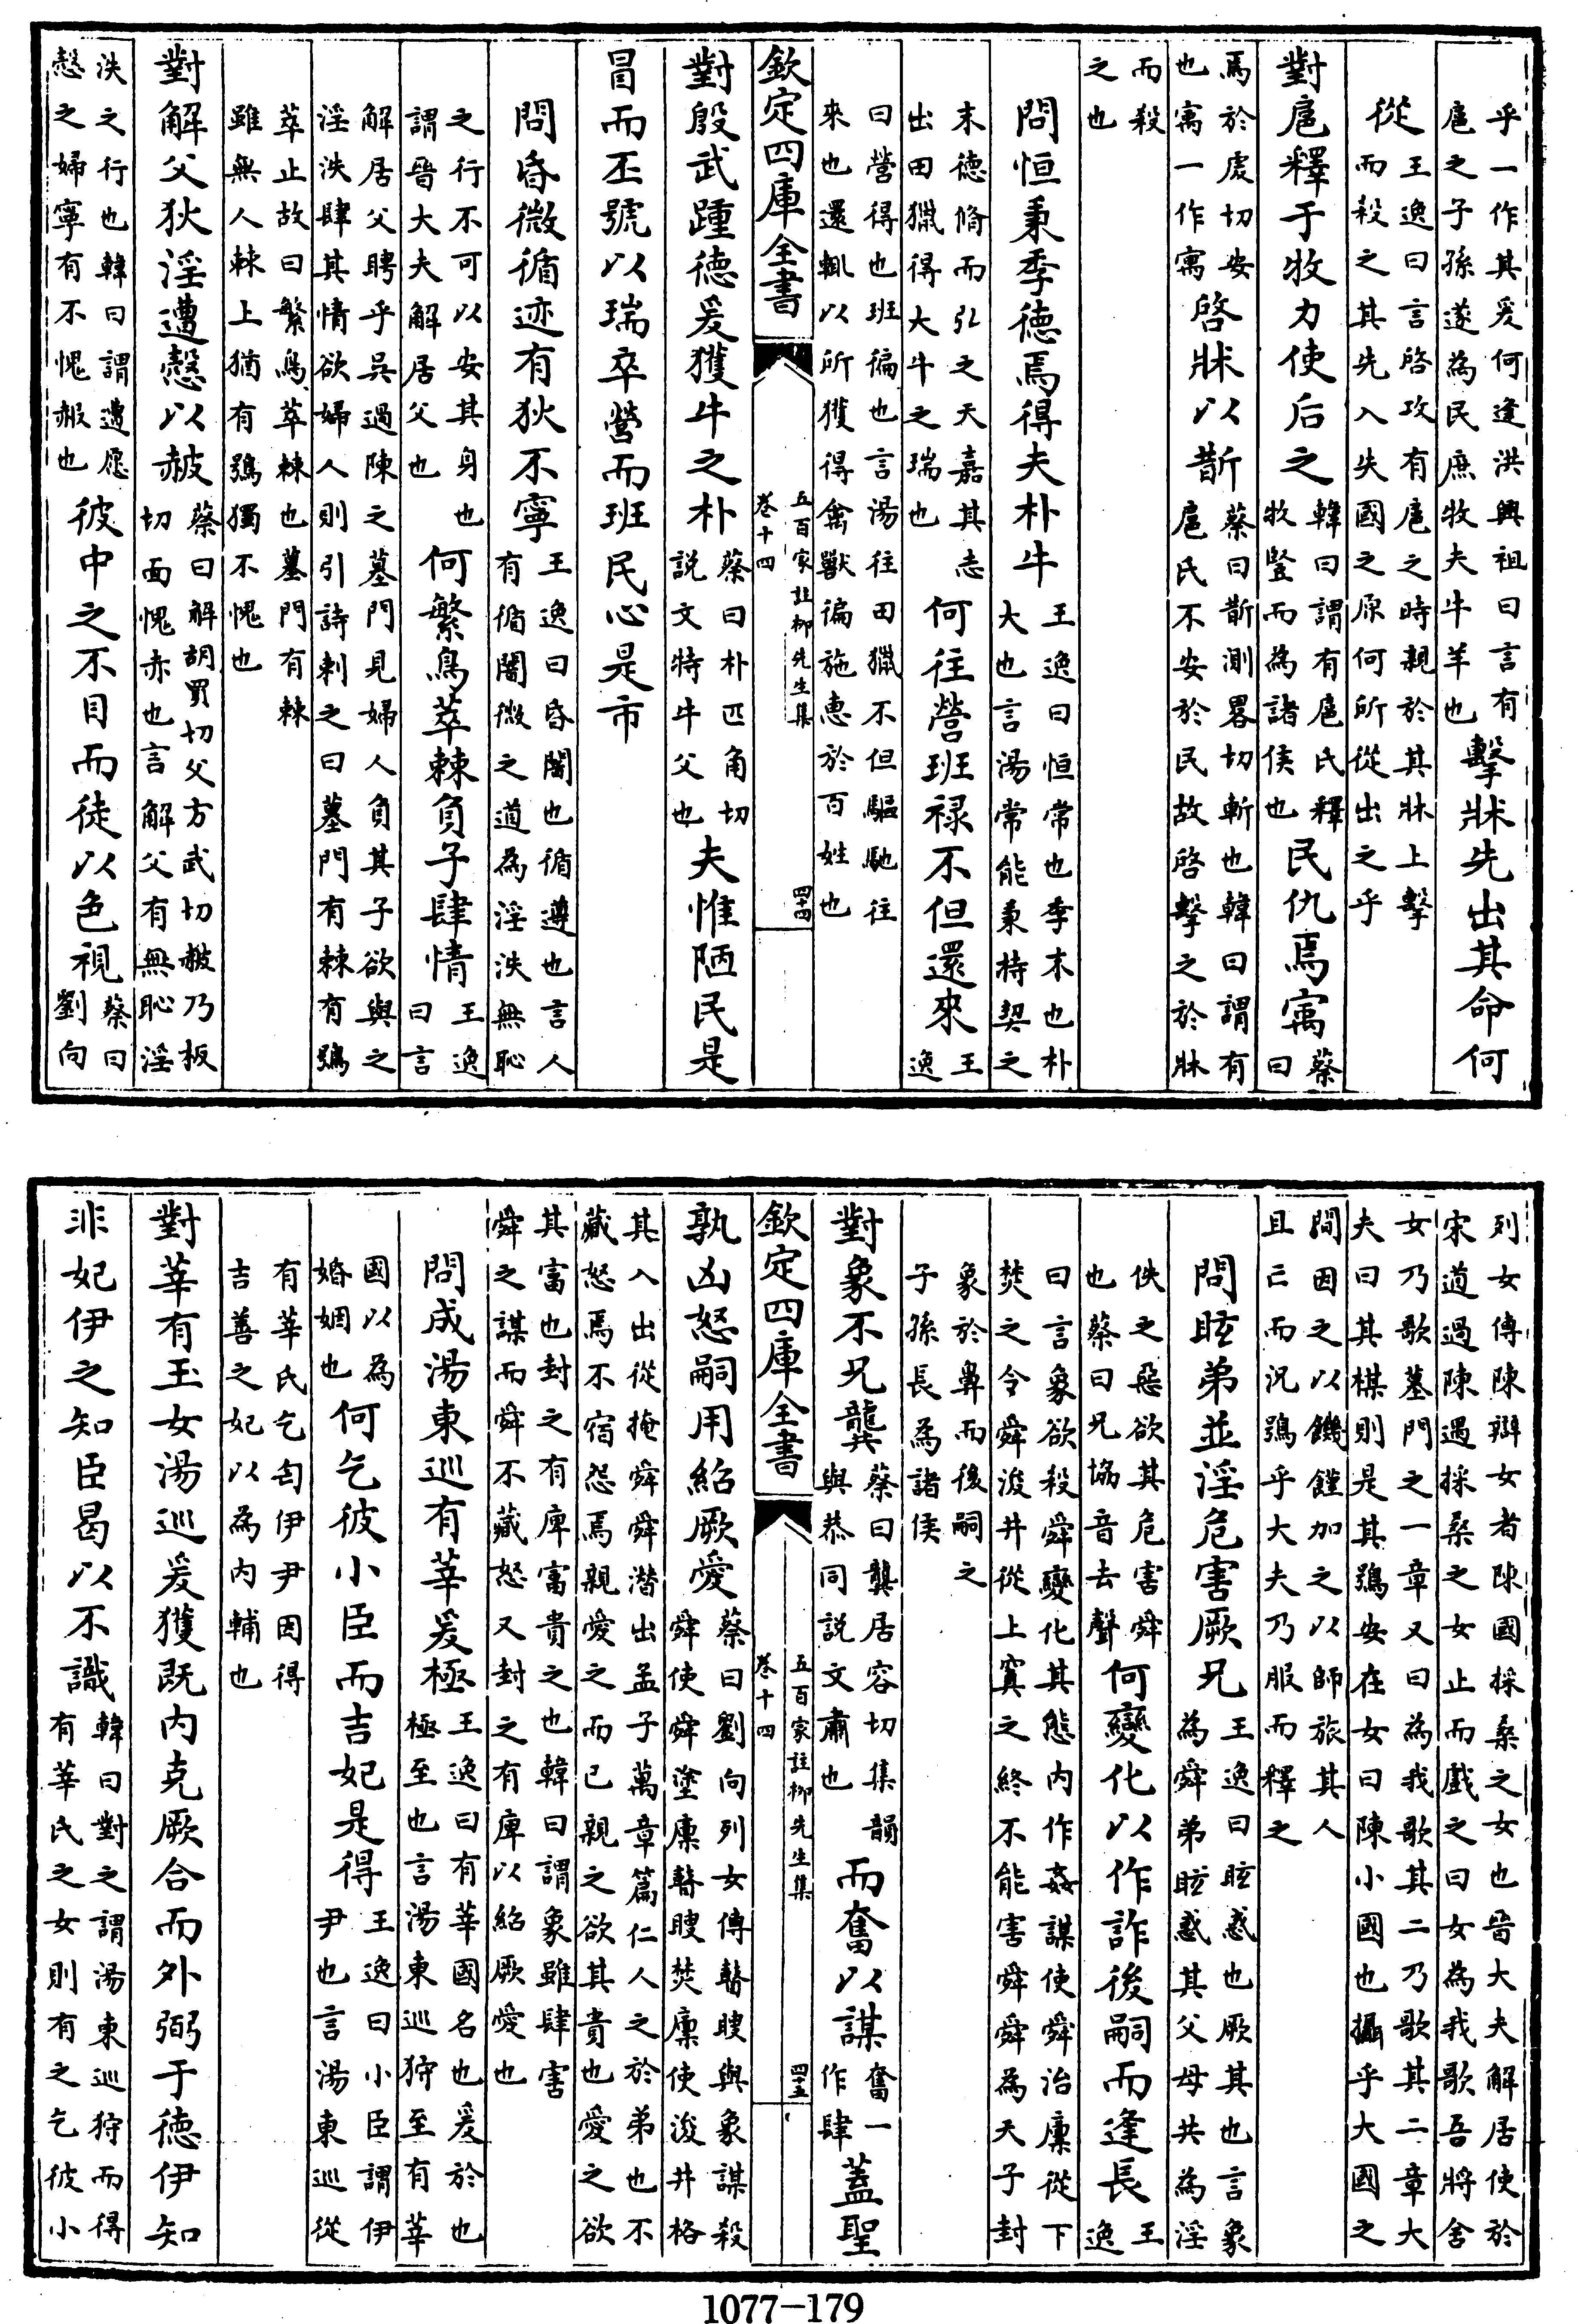 乎一作其爰何逢洪興祖曰言有扈之子孫遂為民庶牧夫牛羊也擊牀先出其命何
從王逸曰言啓攻有扈之時親於其牀上擊而殺之其先人失國之原何所從出之乎
對扈釋于牧力使后之韓曰謂有扈氏釋牧豎而為諸侯也民仇焉寓蔡曰
焉於虔切安也寓一作寓啓牀以斮蔡曰斮測畧切斬也韓曰謂有扈氏不安於民故啓擊之於牀
而殺之也
問恒秉季德焉得夫朴牛王逸曰恒常也季末也朴大也言湯常能秉持契之
末德脩而弘之天嘉其志出田獵得大牛之瑞也何往營班禄不但還來王逸
曰營得也班徧也言湯往田獵不但驅馳往來也還輒以所獲得禽獸徧施惠於百姓也
欽定四庫全書 五百家註柳先生集 卷十四 四十四
對殷武踵德爰獲牛之朴蔡曰朴匹角切說文特牛父也夫惟陋民是
冒而丕號以瑞卒營而班民心是市
問昏微循迹有狄不寧王逸曰昏闇也循遵也言人有循闇微之道為淫泆無恥
之行不可以安其身也謂晉大夫解居父也何繁鳥萃棘負子肆情王逸曰言
解居父聘乎吳過陳之墓門見婦人負其子欲與之淫泆肆其情欲婦人則引詩刺之曰墓門有棘有鴞
萃止故曰繁鳥萃棘也墓門有棘雖無人棘上猶有鴞獨不愧也
對解父狄淫遭愨以赧蔡曰解胡買切父方武切赧乃板切面愧赤也言解父有無恥淫
泆之行也韓曰謂遭愿愨之婦寧有不愧赧也彼中之不目而徒以色視蔡曰劉向
列女傳陳辯女者陳國採桑之女也晉大夫解居使於宋道過陳遇採桑之女止而戲之曰女為我歌吾將舍
女乃歌墓門之一章又曰為我歌其二乃歌其二章大夫曰其棋則是其鴞安在女曰陳小國也攝乎大國之
間因之以饑饉加之以師旅其人且亡而況鴞乎大夫乃服而釋之
問眩弟並淫危害厥兄王逸曰眩惑也厥其也言象為舜弟眩惑其父母共為淫
佚之惡欲其危害舜也蔡曰兄協音去聲何變化以作詐後嗣而逢長王逸
曰言象欲殺舜變化其態内作姦謀使舜治廩從下焚之令舜浚井從上寘之終不能害舜舜為天子封
象於鼻而後嗣之子孫長為諸侯
對象不兄龔蔡曰龔居容切集韻與恭同說文肅也而奮以謀奮一作肆蓋聖
欽定四庫全書 五百家註柳先生集 卷十四 四十五
孰凶怒嗣用紹厥愛蔡曰劉向列女傳瞽瞍與象謀殺舜使舜塗廩瞽瞍焚廩使浚井格
其入出從掩舜舜潛出孟子萬章篇仁人之於弟也不藏怒焉不宿怨焉親愛之而已親之欲其貴也愛之欲
其富也封之有庳富貴之也韓曰謂象雖肆害舜之謀而舜不藏怒又封之有庳以紹厥愛也
問成湯東巡有莘爰極王逸曰有莘國名也爰於也極至也言湯東巡狩至有莘
國以為婚姻也何乞彼小臣而吉妃是得王逸曰小臣謂伊尹也言湯東巡從
有莘氏乞匄伊尹因得吉善之妃以為内輔也
對莘有玉女湯巡爰獲既内克厥合而外弼于德伊知
非妃伊之知臣曷以不識韓曰對之謂湯東巡狩而得有莘氏之女則有之乞彼小
1077—179